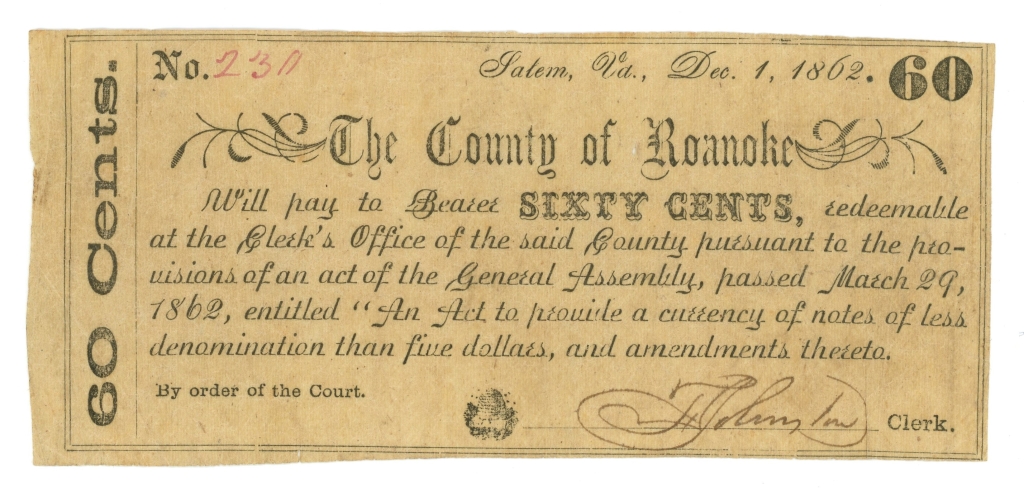 No. 230
Salem, Va., Dec. 1, 1862. 60
60 Cents.
The County of Roanoke
Will pay to Bearer SIXTY CENTS, redeemable
at the Clerk's Office of the said County pursuant to the pro-
visions of an act of the General Assembly, passed March 29,
1862, entitled "An Act to provide a currency of notes of less
denomination than five dollars, and amendments thereto.
By order of the Court.
Clerk.